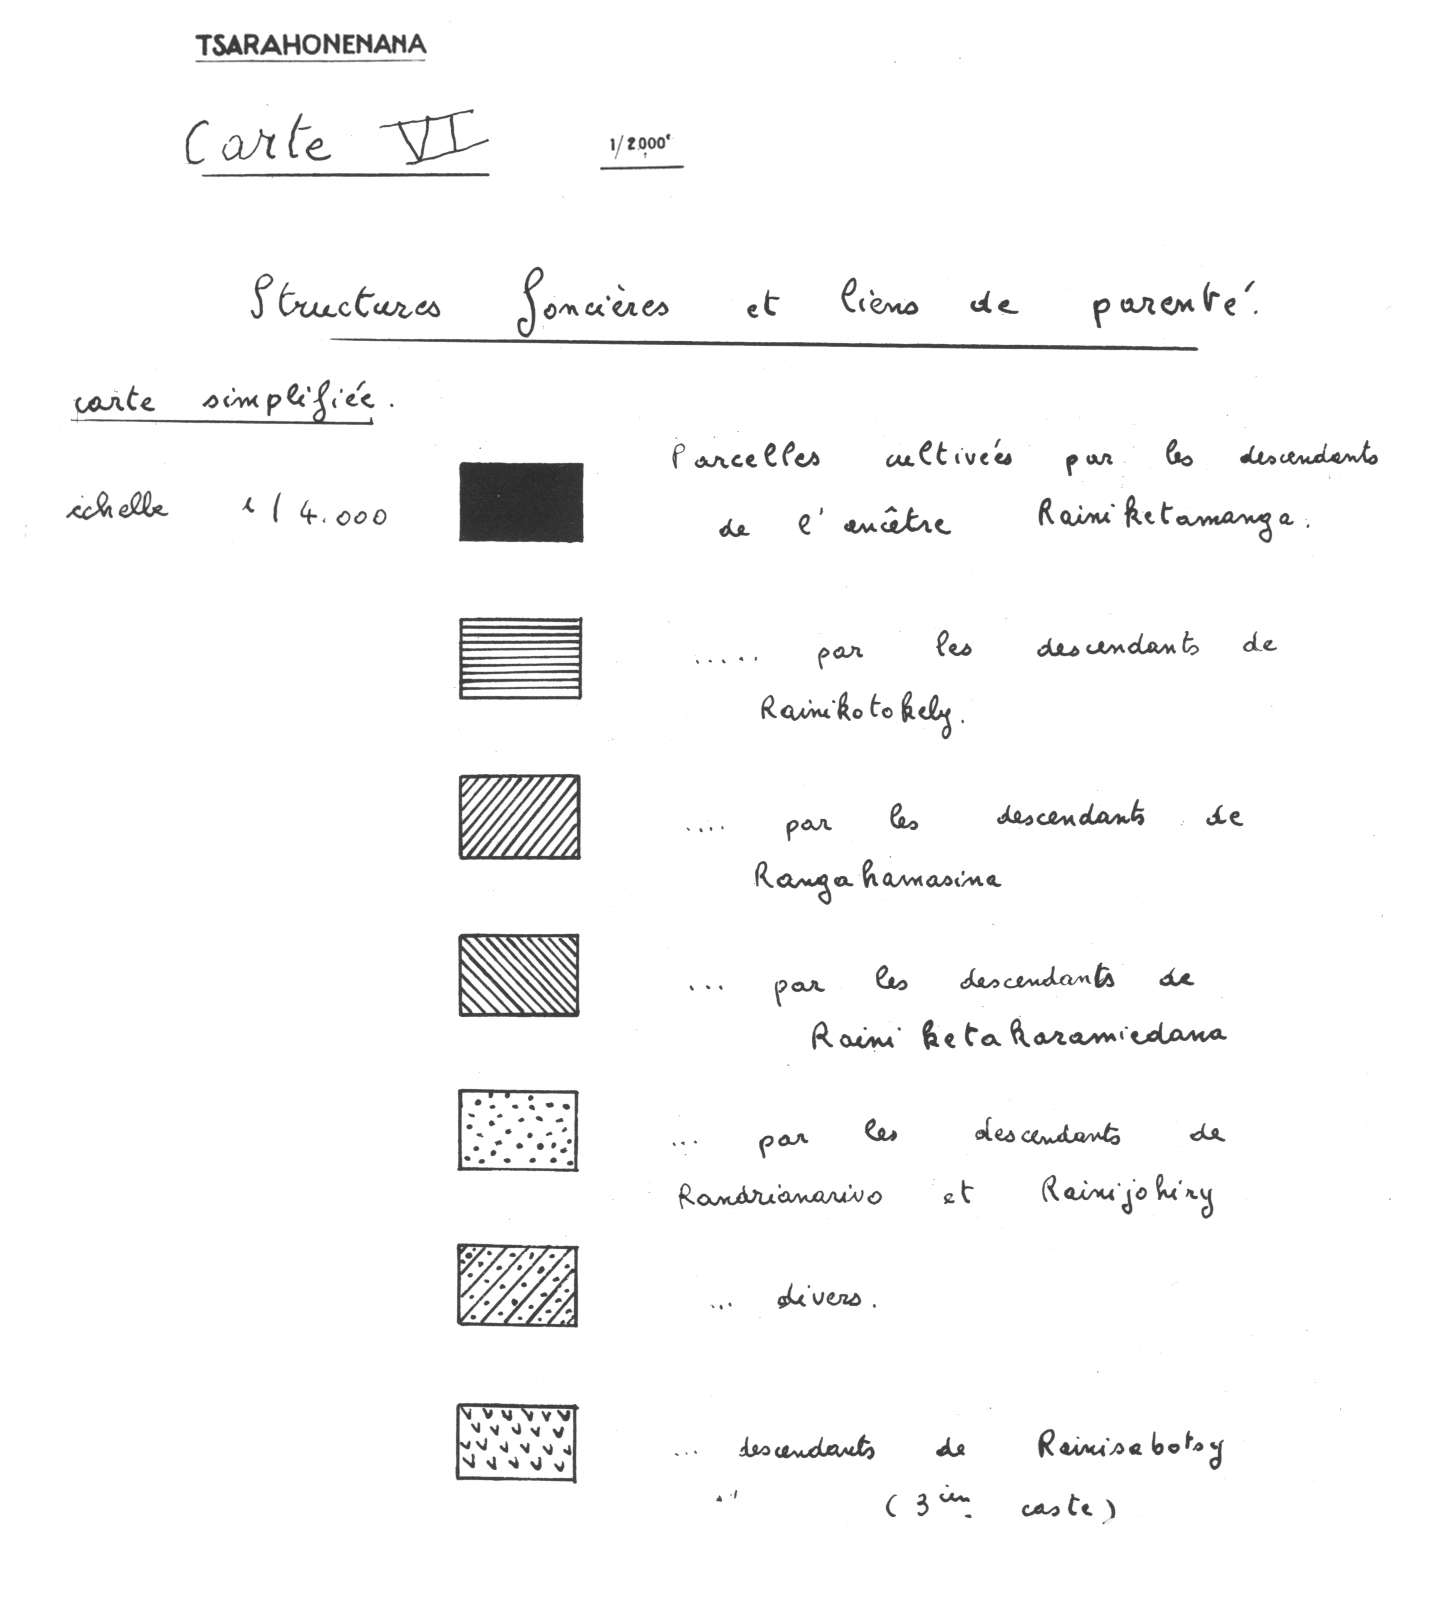 TSARAHONENANA
Carte VI
1/2.000e
Structures foncières et liens de parenté.
carte simplifiée.
échelle 1/4.000
Parcelles cultivées par les descendants
de l'ancêtre Rainiketamanga.
..... par les descendants de
Rainikotokely.
.... par les descendants de
Rangahamasina
... par les descendants de
Raini keta karamiedana
... par les descendants de
Randrianarivo et Rainijohiry
... divers.
... descendants de Rainisabotsy
(3ièm. caste)